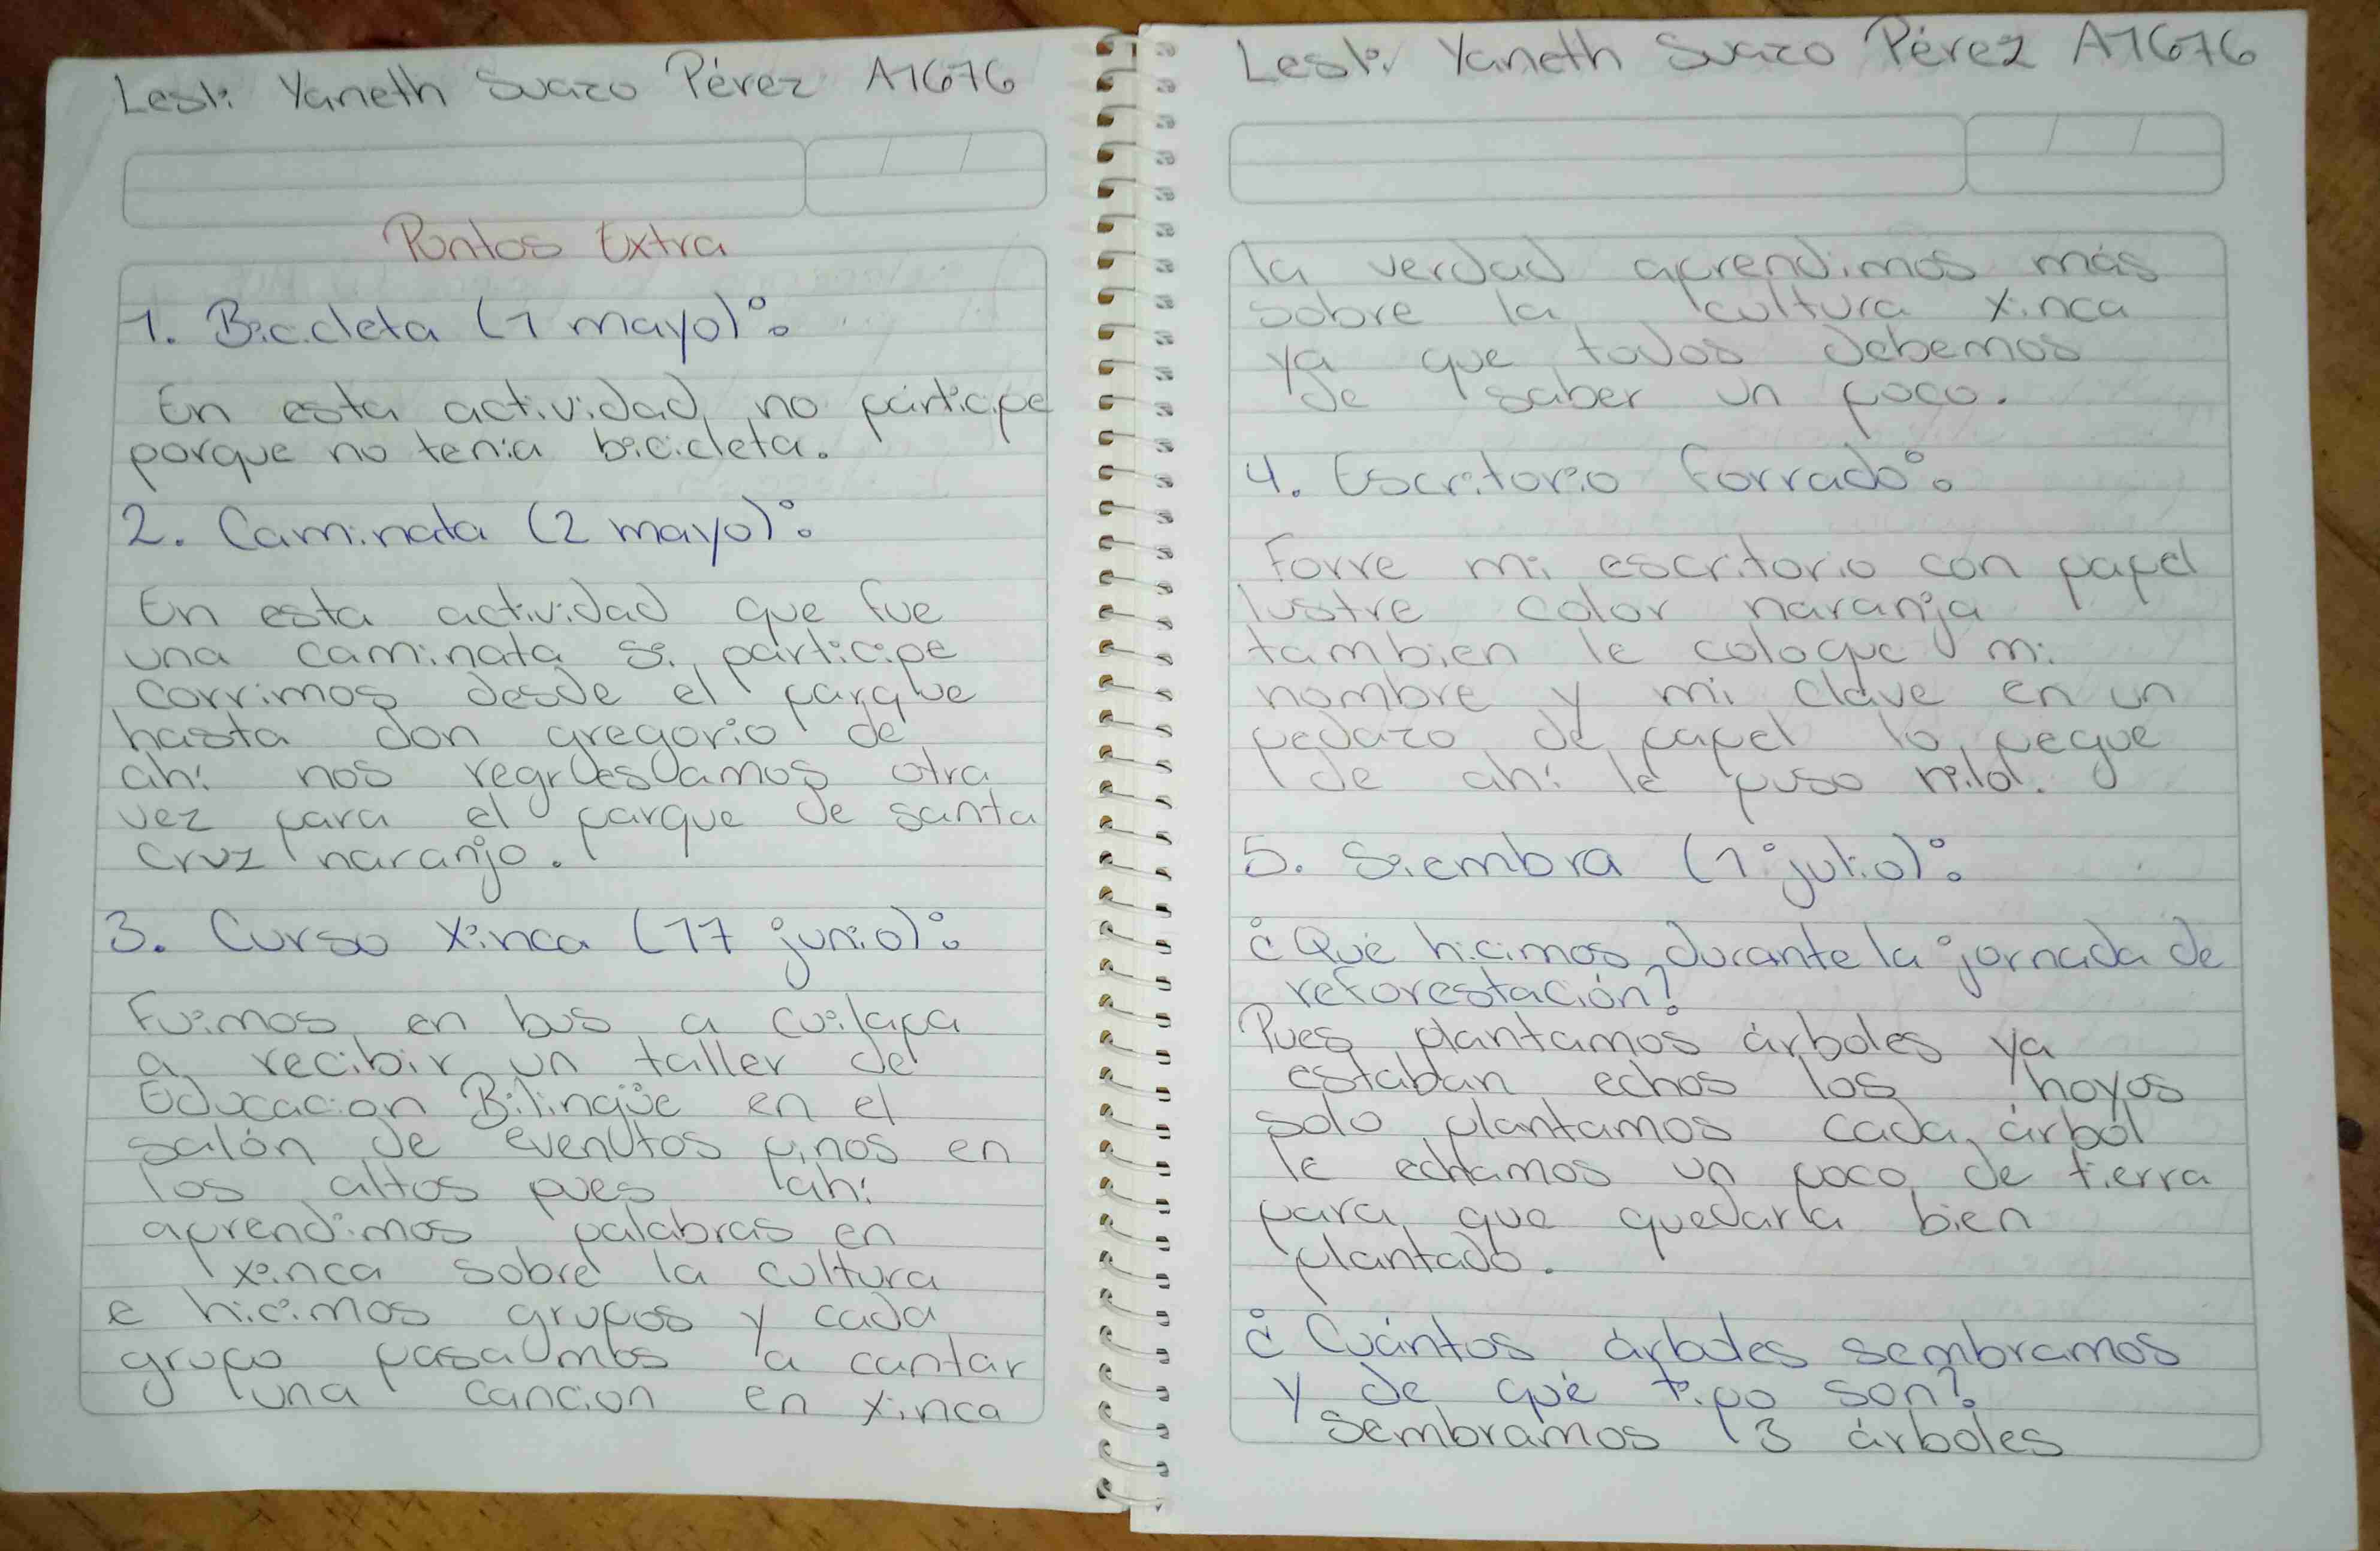 Lesli Yaneth Suazo Pérez A1676
Puntos Extra
1. Bicicleta (1 mayo):
En esta actividad no participe
porque no tenia bicicleta.
2. Caminata (2 mayo):
En esta actividad que fue
una caminata si participe
corrimos desde el parque
hasta don gregorio de
ahi nos regresamos otra
vez para el parque de santa
Cruz naranjo.
3. Curso Xinca (17 junio):
Fuimos en bus a cuilapa
a recibir un taller de
Educacion Bilingüe en el
salón de eventos pinos en
los altos pues ahi
aprendimos palabras en
xinca sobre la cultura
e hicimos grupos y cada
grupo pasamos a cantar
una cancion en xinca
Lesli Yaneth Suazo Pérez A1676
la verdad aprendimos más
sobre la cultura xinca
ya que todos debemos
de saber un poco.
4. Escritorio Forrado:
Forre mi escritorio con papel
lustre color naranja
tambien le coloque mi
nombre y mi clave en un
pedazo de papel lo pegue
de ahi le puso nilo.
5. Siembra (1 julio):
¿Qué hicimos durante la jornada de
reforestación?
Pues plantamos árboles ya
estaban echos los hoyos
solo plantamos cada árbol
le echamos un poco de tierra
para que quedara bien
plantado.
¿Cuántos árboles sembramos
y de qué tipo son?
Sembramos 3 árboles